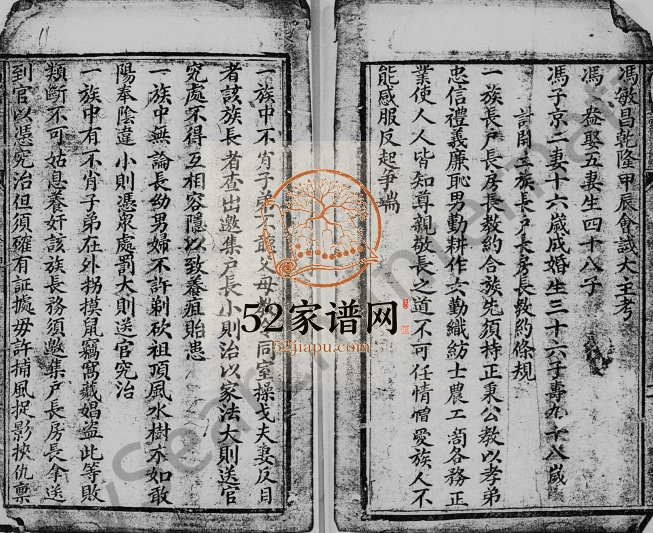 馮敏昌乾隆甲辰會試大主考
馮 益娶五妻生四十八子
馮子京二妻十六歲成婚生三十六子壽九十八歲
計開立族長戶長房長教約條規
一族長戶長房長教約合族先須持正秉公教以孝弟
忠信禮義廉恥男勤耕作女勤織紡士農工商各務正
業使人人皆知尊親敬長之道不可任情憎愛族人不
能感服反起爭端
一族中不肖子弟 父母教 同室操戈夫妻反目
者該族長者查出邀集戶長小則治以家法大則送官
究處不得互相容隱以致養疽貽患
一族中無論長幼男婦不許剃砍祖頂風水樹木如敢
陽奉陰違小則憑衆處罰大則送官究治
一族中有不肖子弟在外拐摸鼠竊窩藏娼盗此等敗
類斷不可姑息養奸該族長務須邀集戶長房長拿送
到官以憑究治但須確有証據毋許捕風捉影挾仇禀
52家谱网
52jiapu.com